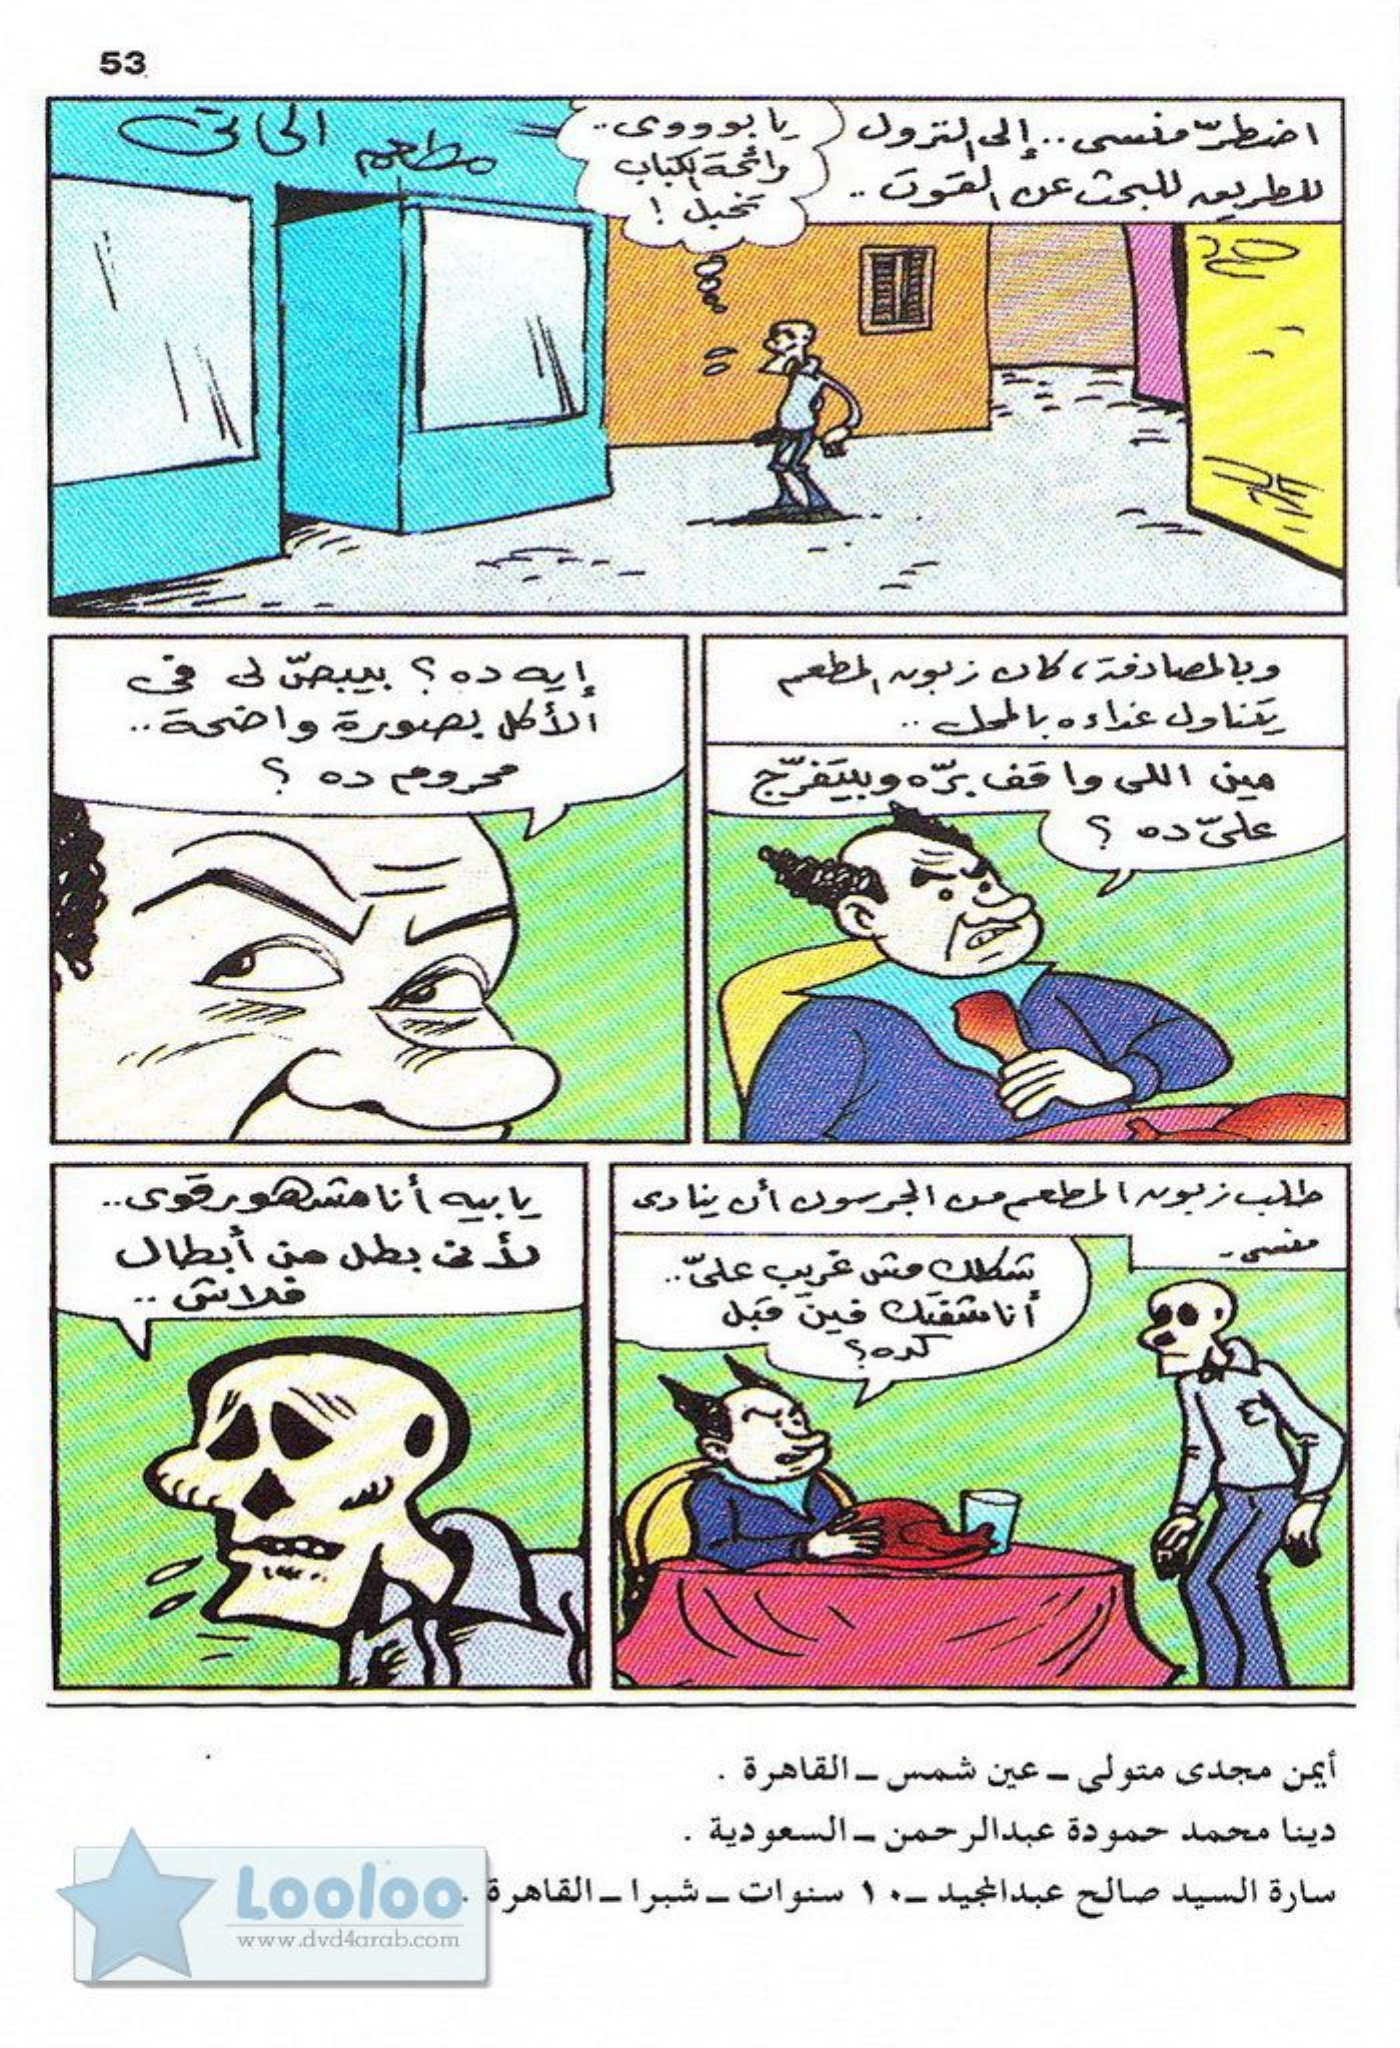 53
اضطرّ منسى.. إلى النزول
للطريق للبحث عن القوت..
يا بوووى..
رائحة الكباب
تخبل!
مطعم الحاتى
وبالمصادفة، كان زبون المطعم
يتناول غداءه بالمحل..
مين اللى واقف برّه وبيتفرّج
علىّ ده؟
إيه ده؟ بيبصّ لى فى
الأكل بصورة واضحة..
محروم ده؟
طلب زبون المطعم من الجرسون أن ينادى
منسى..
شكلك مش غريب علىّ..
أنا شفتك فين قبل
كده؟
يا بيه أنا مشهور قوى..
لأنى بطل من أبطال
فلاش..
أيمن مجدى متولى ــ عين شمس ــ القاهرة .
دينا محمد حمودة عبدالرحمن ــ السعودية .
سارة السيد صالح عبدالمجيد ــ ١٠ سنوات ــ شبرا ــ القاهرة .
Looloo
www.dvd4arab.com